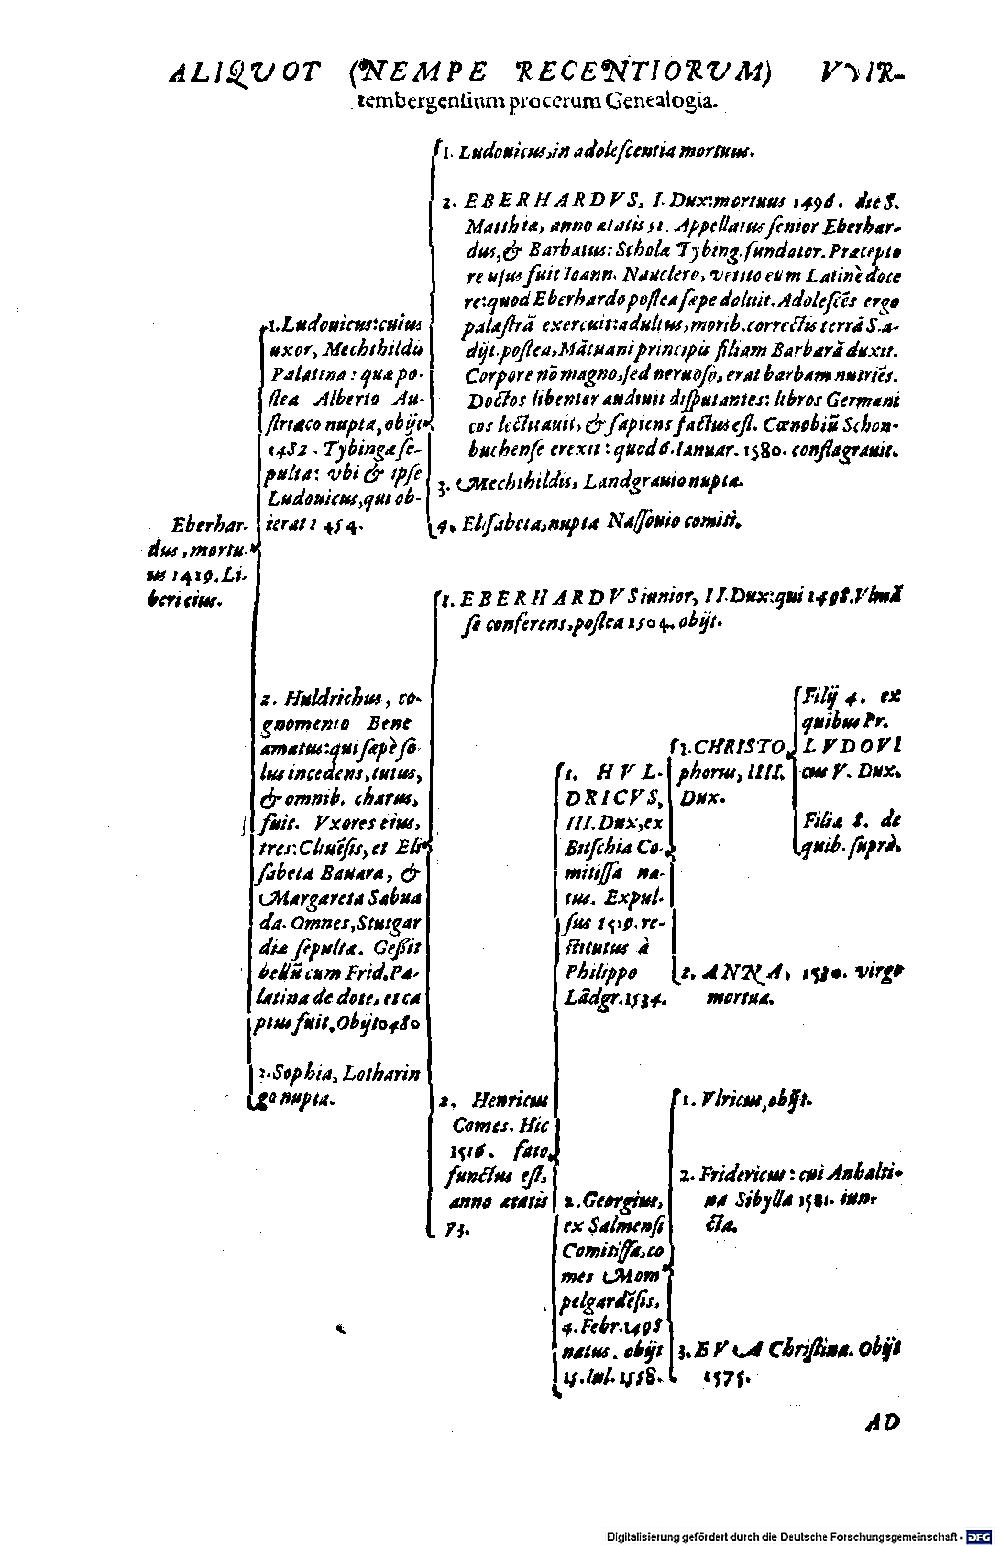 ALIQVOT (NEMPE RECENTIORVM) VVIR-
tembergensium procerum Genealogia.
Eberhar-
dus, mortu-
us 1419. Li-
beri eius.
1. Ludouicus: cuius
uxor, Mechthildis
Palatina: quæ po-
stea Alberto Au-
striaco nupta, obijt
1482. Tybingæ se-
pulta: vbi & ipse
Ludouicus, qui ob-
ierat 1454.
1. Ludouicus, in adolescentia mortuus.
2. EBERHARDVS, I. Dux: mortuus 1496. die S.
Matthiæ, anno ætatis 51. Appellatus senior Eberhar-
dus, & Barbatus: Scholæ Tybing. fundator. Præcepto
re usus fuit Ioann. Nauclero, vetito eum Latinè doce
re: quod Eberhardo postea sæpe doluit. Adolescẽs ergo
palæstrã exercuit: adultus, morib. correctis terrã S. a-
dijt. postea, Mãtuani principis filiam Barbarã duxit.
Corpore nõ magno, sed neruoso, erat barbam nutriẽs.
Doctos libenter audiuit disputantes: libros Germani
cos lectitauit, & sapiens factus est. Cœnobiũ Schon-
buchense erexit: quod 6. Ianuar. 1580. conflagrauit.
3. Mechthildis, Landgrauio nupta.
4. Elisabeta, nupta Nassouio comiti.
2. Huldrichus, co-
gnomento Bene
amatus: qui sæpè so
lus incedens, tutus,
& omnib. charus,
fuit. Vxores eius,
tres: Cliuẽsis, et Eli
sabeta Bauara, &
Margareta Sabau
da. Omnes, Stutgar
diæ sepultæ. Gessit
bellũ cum Frid. Pa-
latino de dote, et ca
ptus fuit. Obijt 1480
3. Sophia, Lotharin
go nupta.
1. EBERHARDVS iunior, II. Dux: qui 1498. Vlmã
se conferens, postea 1504. obijt.
2. Henricus
Comes. Hic
1516. fato
functus est,
anno ætatis
73.
1. HVL-
DRICVS,
III. Dux, ex
Bitschia Co-
mitissa na-
tus. Expul-
sus 1519. re-
stitutus à
Philippo
Lãdgr. 1534.
1. CHRISTO
phorus, IIII.
Dux.
Filij 4. ex
quibus Pr.
LVDOVI
cus V. Dux.
Filiæ 8. de
quib. suprà.
2. ANNA, 1530. virgo
mortua.
2. Georgius,
ex Salmensi
Comitissa, co
mes Mom
pelgardẽsis,
4. Febr. 1498
natus. obijt
15. Iul. 1558.
1. Vlricus, obijt.
2. Fridericus: cui Anhalti-
na Sibylla 1581. iun-
cta.
3. EVA Christina. Obijt
1575.
AD
Digitalisierung gefördert durch die Deutsche Forschungsgemeinschaft - DFG